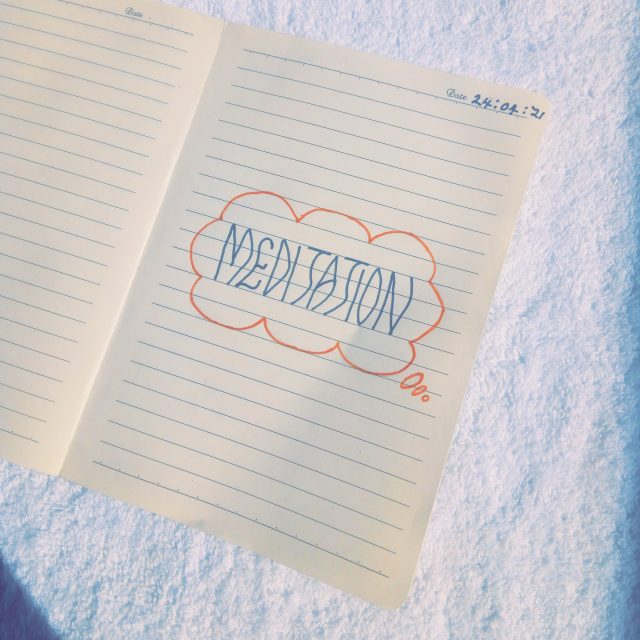 Date
Date 24:02:21
MEDITATION